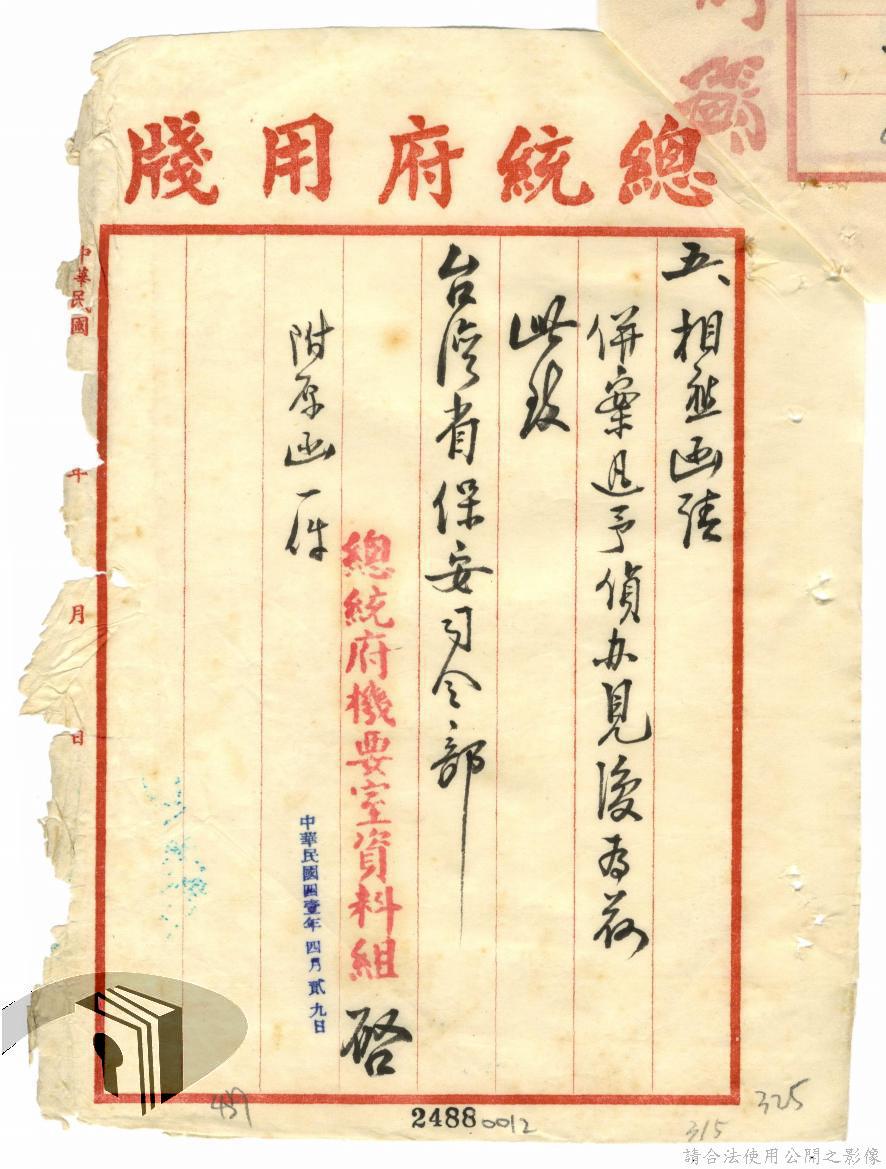 總統府用牋
五、相應函請
併案迅予偵办見復為荷
此致
台灣省保安司令部
總統府機要室資料組 啓
中華民國四壹年 四月 貳九日
附原函一件
中華民國 年 月 日
487
2488
0012
315
325
請合法使用公開之影像